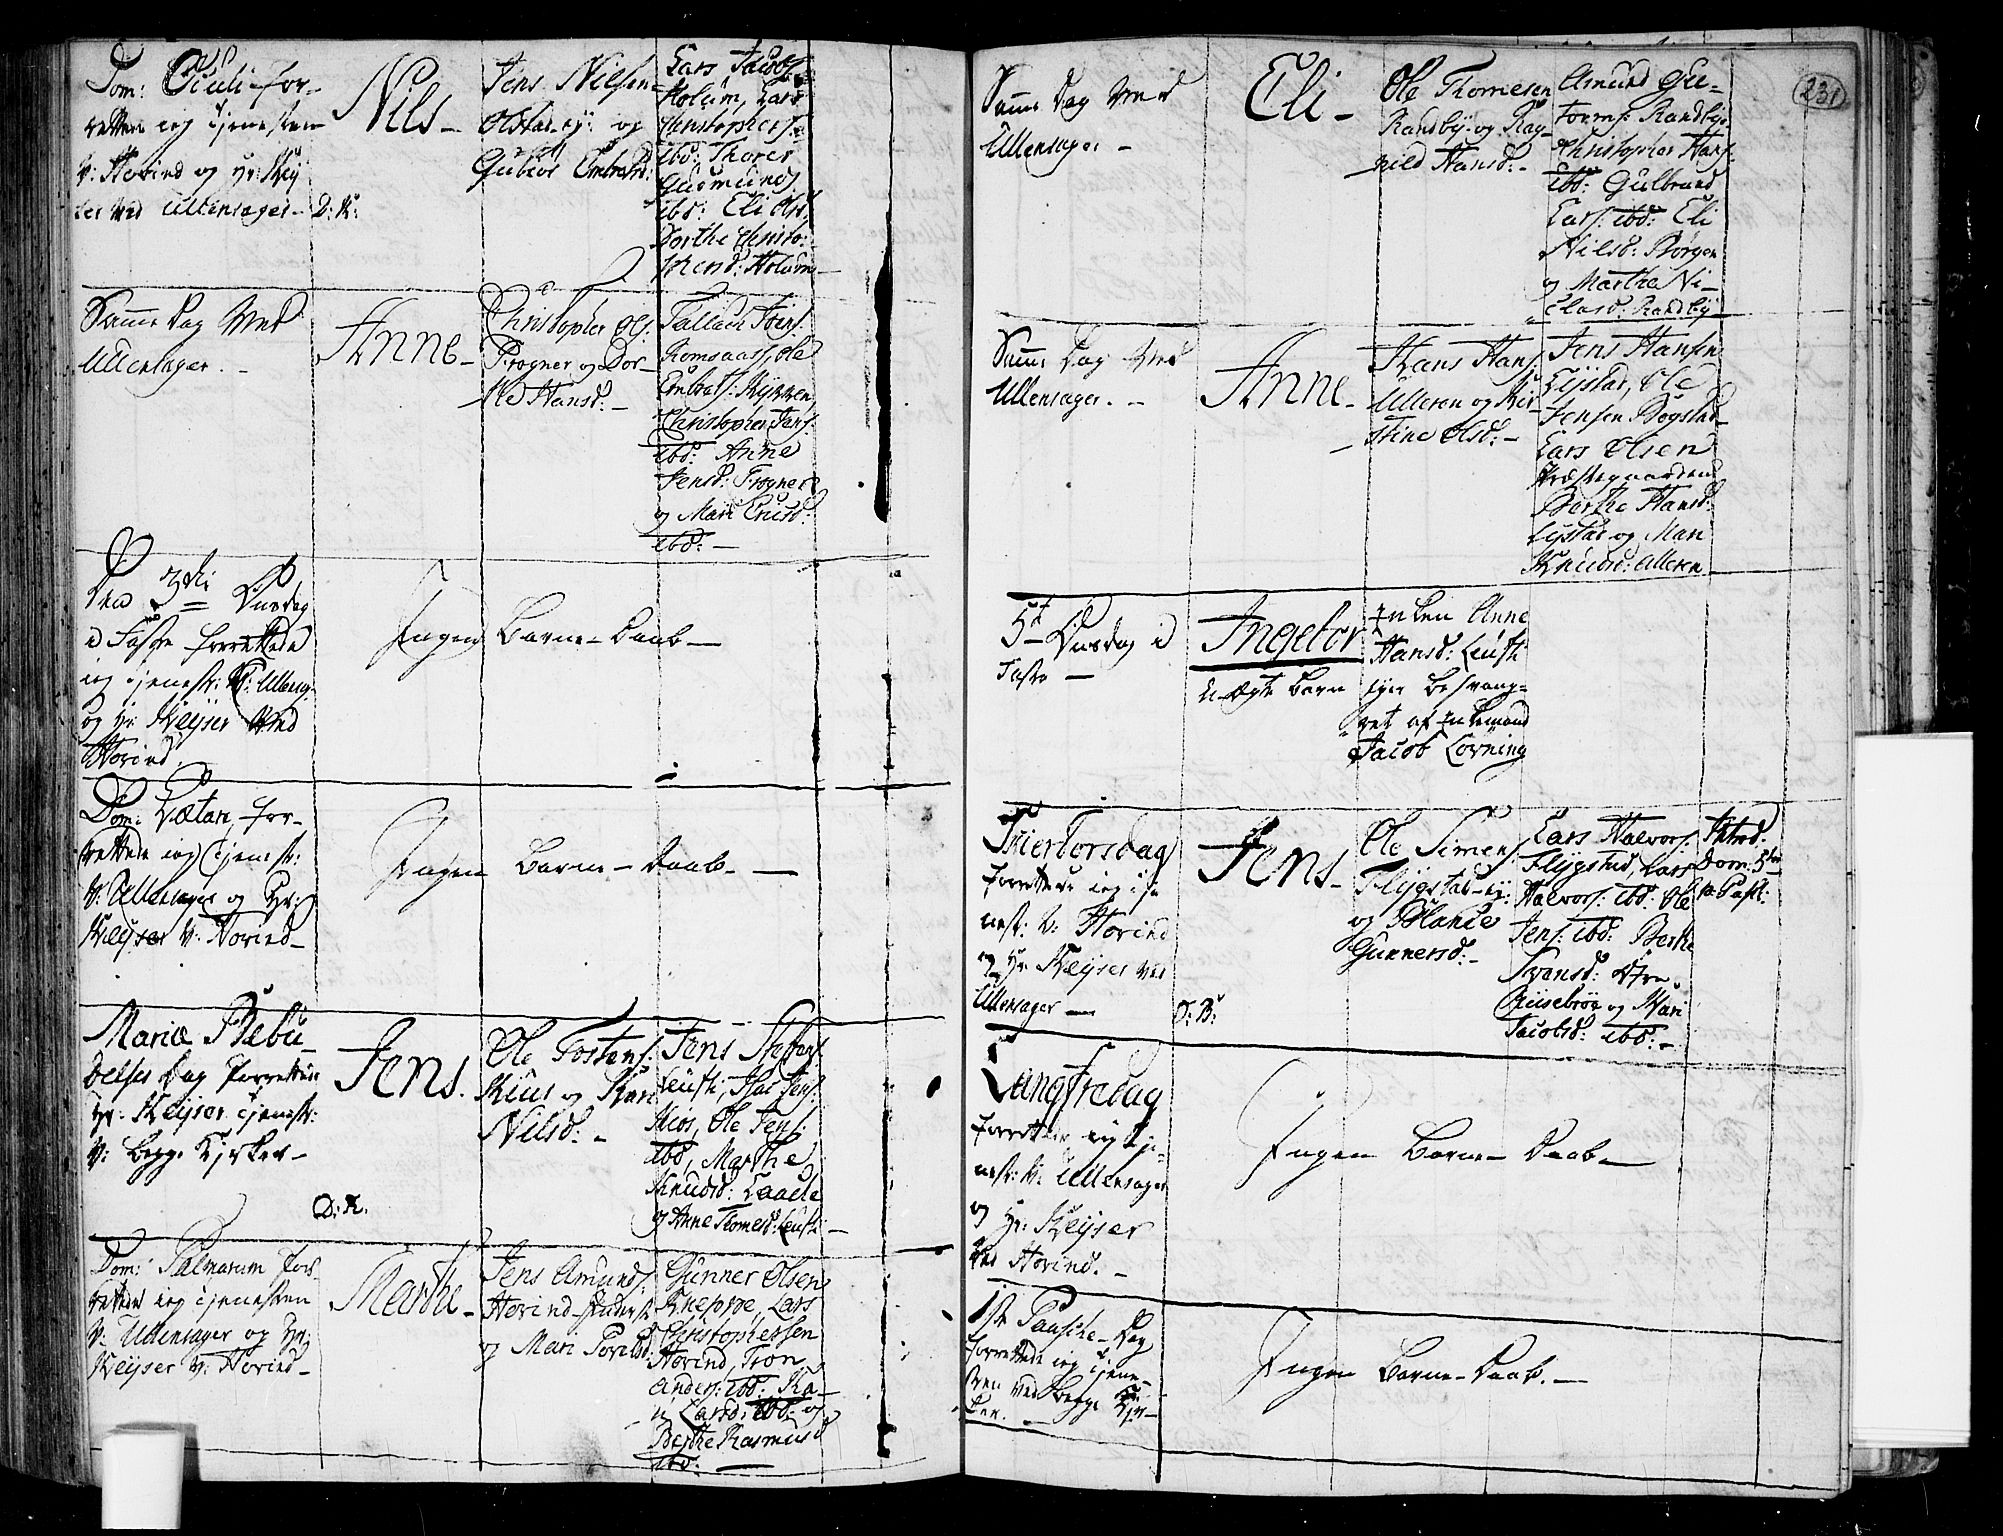 Dom: Oculi for-
rettede ieg Tjenesten
V: Hovind og Hr: Key
ser ved Ullensager - D: K:
Nils -
Jens Nilsen
Olstad-ej: og
Gubior Embretsd:
Lars Jacobs:
Holum, Lars
Christophers:
ibd: Thorer
Gudmunds:
ibd: Eli Olsd:
Dorthe Christo-
phersd: Holum -
Samme Dag Ved
Ullensager. -
Anne -
Christopher Ols:
Frogner og Dor-
the Hansd: -
Tallach Ivers:
Romsaas, Ole
Embrets: Kykken,
Christopher Jens:
ibd: Anne
Jensd: Frogner
og Mari Ericsd:
ibd: -
Den 3die Onsdag
i Faste forrettede
ieg Tjenest: V: Ullensag:
og Hr Keyser Ved
Hovind.
Ingen Barne-Daab -
Dom: Lætare, for-
rettede ieg Tjenest:
V: Ullensager og Hr:
Keyser V: Hovind -
Ingen Barne-Daab. -
Mariæ Bebu-
delses Dag forrettede
Hr: Keyser Tjenest:
V: begge Kirker -
D: K.
Jens.
Ole Tostens:
Kius og Kari
Nilsd: -
Jens Steffens:
Leufti, Isac Jens:
Kios, Ole Jens:
ibd, Marthe
Knudsd: Laache
og Anne Thomesd: Leufti -
Dom: Palmarum for-
rettede ieg Tjenesten
V: Ullensager og Hr:
Keyser V: Hovind -
Marthe -
Jens Amunds:
Hovind
og Mari Povelsd:
Gunner Olsen
Kneppe, Lars
Christophersen
Hovind, Tron
Anders: ibd: Ka-
ri Larsd: ibd: og
Berthe Rasmusd
ibd: -
231
Samme Dag Ved
Ullensager -
Eli -
Ole Thomesen
Randby og Rag-
nild Hansd: -
Amund Gut-
torms: Randby,
Christopher Hans:
ibd: Gulbrand
Lars: ibd: Eli
Nilsd: Borgen
og Marthe Ni-
elsd: Randby -
Samme Dag Ved
Ullensager. -
Anne -
Hans Hans:
Ulleren og Kir-
stine Olsd: -
Jens Hansen
Lystad, Ole
Jensen Bogstad
Lars Olsen
Præstegaarden
Berthe Hansd:
Lystad og Mari
Knudsd: Ulleren
5te Onsdag i
Faste -
Ingebor
U-Ægte Barn
Enken Anne
Hansd: Leufti
ejer besvang-
ret af Enkemand
Jacob Lovning
Skiertorsdag
forrettede ieg Tje
nest: V: Hovind
og Hr Keyser Ved
Ullensager -
D: B:
Jens -
Ole Simens:
Flygstad-ej:
og Blance
Gunnersd: -
Lars Halvors:
Flygstad, Lars
Halvors: ibd: Ole
Jens: ibd: Berthe
Svensd:
Riisebroe og Kari
Jacobsd: ibd: -
Introd:
Dom: 5te
p. Pasch:
Langfredag
forrettede ieg Tje-
nest: V: Ullensager
og Hr: Keyser
Ved Hovind. -
Ingen Barne-Daab -
1ste Paasche-Dag
forrettede ieg Tjene-
sten Ved begge Kir-
ker. -
Ingen Barne-Daab. -